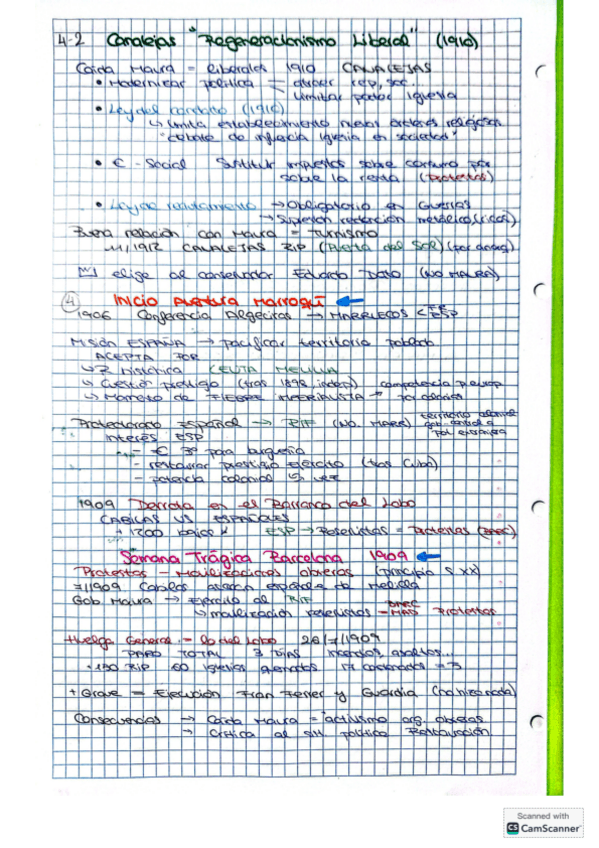 4-2 Canalejas "Regeneracionismo Liberal" (1910)
Caida Maura = liberales 1910 CANALEJAS
• Modernizar política = atraer rep, soc
Limitar poder iglesia
• Ley del candado (1910)
↳ limita establecimiento nuevas órdenes religiosas
"debate de influencia iglesia en sociedad"
• € - Social Sustituir impuestos sobre consumo por
sobre la renta (Protestas)
• Ley de reclutamiento → Obligatorio en Guerras
→ Supresión redención metálico (ricos)
Buena relación con Maura = Turnismo
11/1912 CANALEJAS RIP (Puerta del Sol) (por anarq)
elige al conservador Eduardo Dato (NO MAURA)
4 INICIO Aventura Marroquí
1906 Conferencia Algeciras → MARRUECOS < FR ESP
Misión ESPAÑA → pacificar territorio poblado
ACEPTA POR
↳ R histórica CEUTA MELILLA
↳ Cuestión prestigio (tras 1898, indep) competencia p europ
↳ Momento de FIEBRE IMPERIALISTA → por colonias
Protectorado Español → RIF (NO. MARR) territorio colonial
Interés ESP
- € 3º para burguesía
- restaurar prestigio ejército (tras Cuba)
- potencia colonial
1909 Derrota en el Barranco del Lobo
CABILAS VS ESPAÑOLES
+ 1200 bajas ESP → Reservistas = Protestas (BARC)
Semana Trágica Barcelona 1909
Protestas - Movilizaciones obreras (principio S XX)
7/1909 Cabilas atacan española de Melilla
Gob Maura → Ejército al RIF
↳ movilización reservistas - BARC MAD Protestas
Huelga General - lo del Lobo 26/7/1909
PARO TOTAL 3 días incendios asaltos...
+ 150 RIP 60 iglesias quemadas 17 condenados = 5
+ Grave = Ejecución Fran Ferrer y Guardia
Consecuencias → Caida Maura = activismo org. obreras
→ Crítica al sist. político Restauración
Scanned with
CS CamScanner